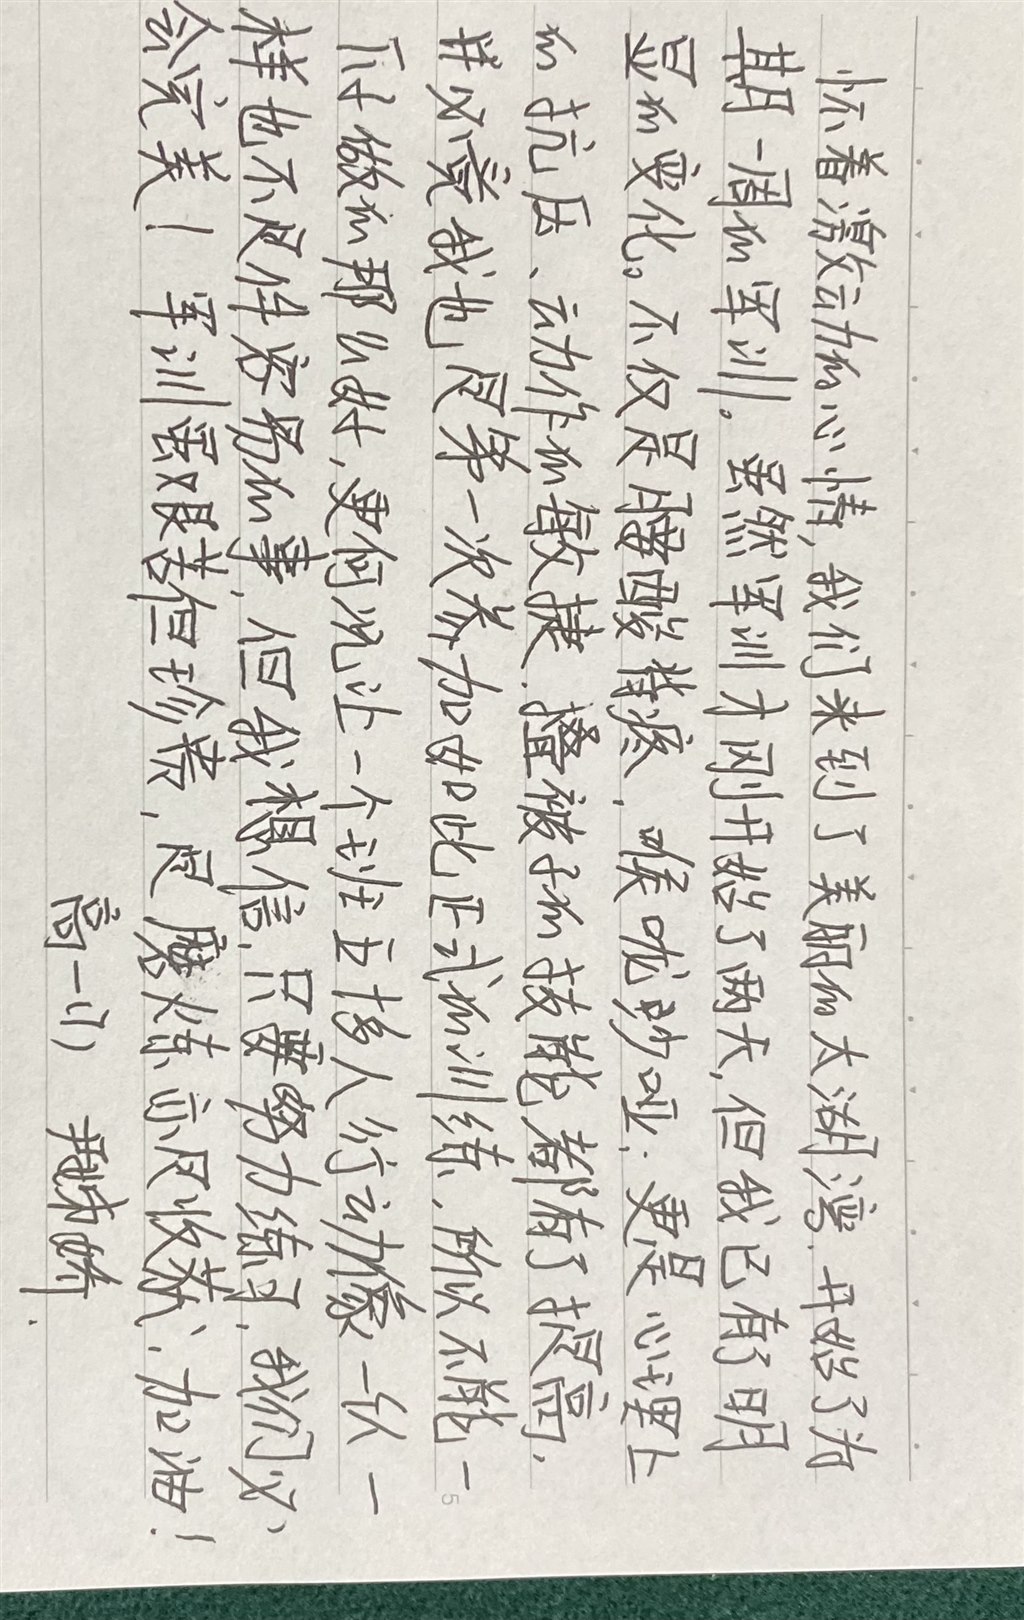 怀着激动的心情，我们来到了美丽的太湖湾，开始了为
期一周的军训。虽然军训才刚开始了两天，但我已有了明
显的变化。不仅是腰酸背疼，喉咙沙哑；更是心理上
的抗压、动作的敏捷、叠被子的技能都有了提高，
毕竟我也是第一次参加如此正式的训练，所以不能一
下子做的那么好，更何况让一个班五十多人行动像一个人一
样也不是件容易的事，但我相信，只要努力练习，我们必
会完美！军训虽艰苦但珍贵，是磨炼亦是收获，加油！
高一（）
5